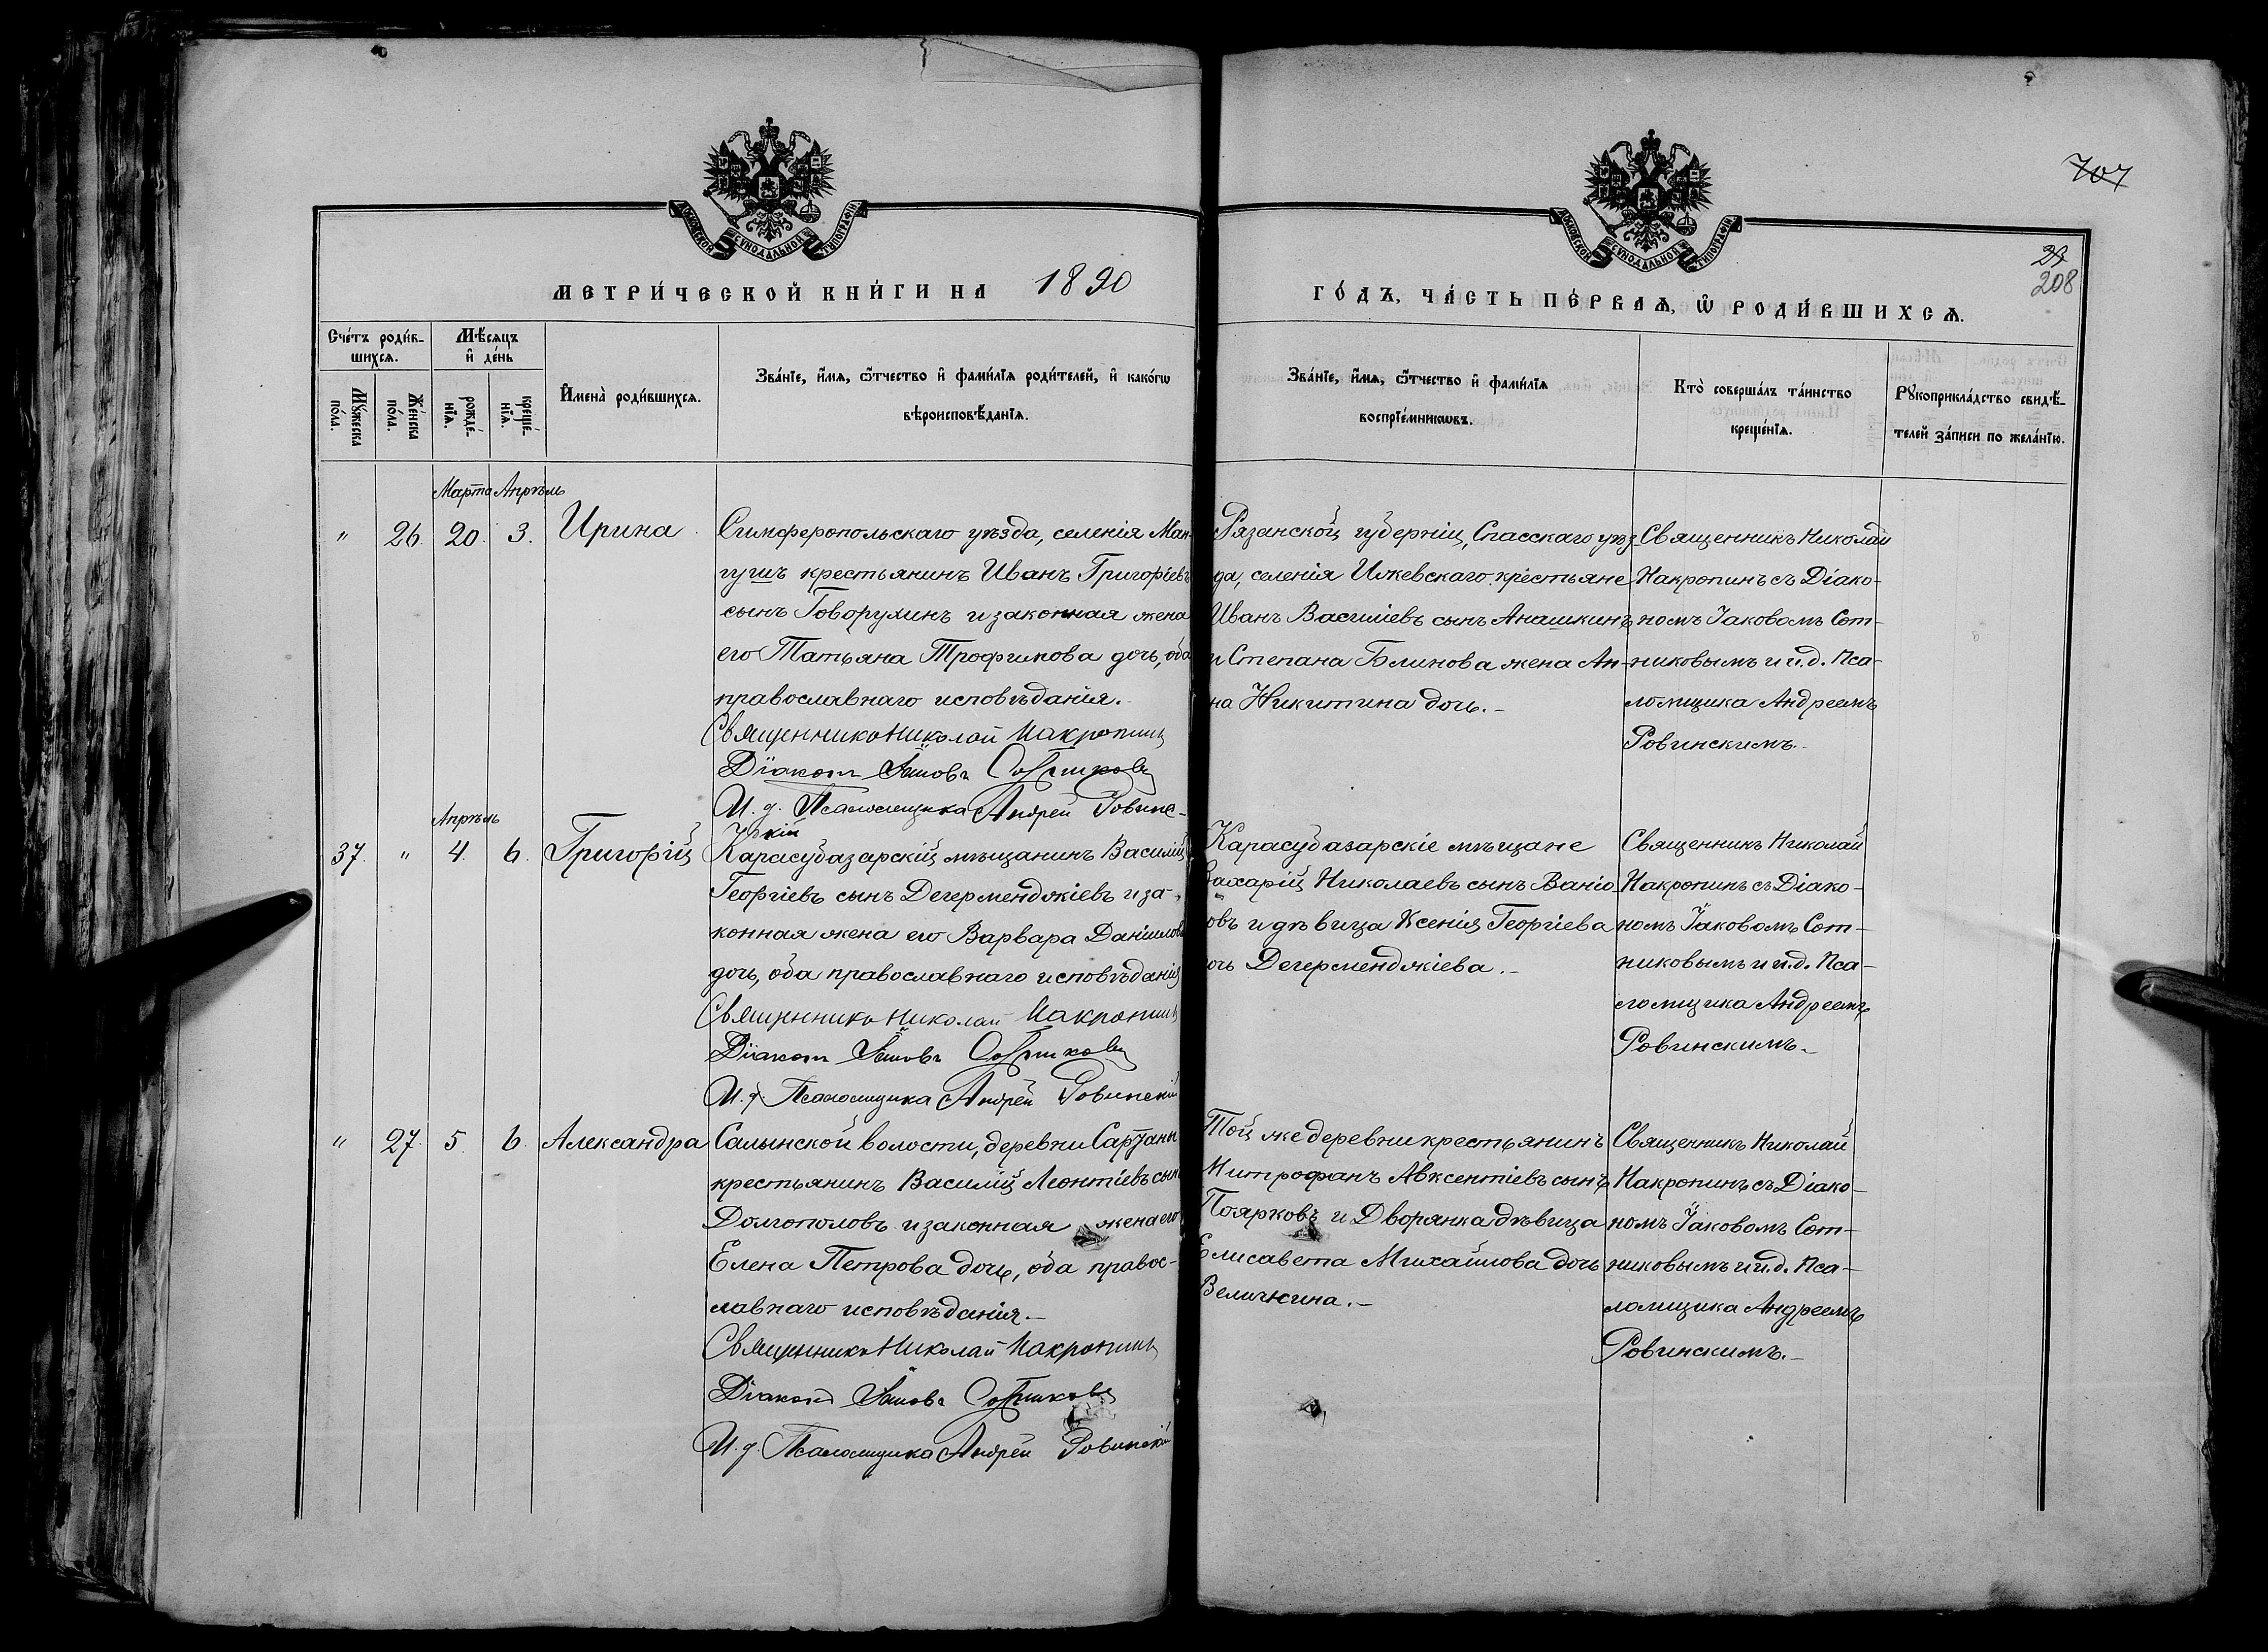 707
МОСКОВСКОЙ СѴНОДАЛЬНОЙ ТИПОГРАФІИ
МОСКОВСКОЙ СѴНОДАЛЬНОЙ ТИПОГРАФІИ
29
208
МЕТРИ́ЧЕСКОЙ КНИ́ГИ НА 1890
ГО́ДЪ, ЧА́СТЬ ПЕ́РВАѦ, Ѡ҆ РОДИ́ВШИХСѦ.
Сче́тъ роди́в-
шихсѧ.
Мѣ́сѧцъ
и҆ де́нь
Мꙋ́жеска
по́ла.
Же́нска
по́ла.
рожде́-
нїѧ.
креще́-
нїѧ.
И҆мена̀ роди́вшихсѧ.
Зва́нїе, и҆́мѧ, ѻ҆́тчество и҆ фами́лїѧ роди́телей, и҆ како́гѡ
вѣроисповѣ́данїѧ.
Зва́нїе, и҆́мѧ, ѻ҆́тчество и҆ фами́лїѧ
воспрїе́мникѡвъ.
Кто̀ соверша́лъ та́инство
креще́нїѧ.
Рꙋкоприкла́дство свидѣ́-
телей за́писи по жела́нїю.
Марта Апрѣль
" 26. 20. 3. Ирина
Симферопольскаго уѣзда, селенія Ман-
гушъ крестьянинъ Иванъ Григоріевъ
сынъ Говорухинъ и законная жена
его Татьяна Трофимова дочь, оба
православнаго исповѣданія.
Священникъ Николай Макропинъ
Діаконъ Іаковъ Сотниковъ
И. д. Псаломщика Андрей Ровинс-
кій
Рязанской губерніи, Спасскаго уѣз-
да, селенія Ижевскаго крестьяне
Иванъ Василіевъ сынъ Анашкинъ
и Степана Блинова жена Ан-
на Никитина дочь.-
Священникъ Николай
Макропинъ съ Діако-
номъ Іаковомъ Сот-
никовымъ и и.д. Пса-
ломщика Андреемъ
Ровинскимъ.
Апрѣль
37. " 4. 6. Григорій
Карасубазарскій мѣщанинъ Василій
Георгіевъ сынъ Дегерменджіевъ и за-
конная жена его Варвара Даніилова
дочь, оба православнаго исповѣданія
Священникъ Николай Макропинъ
Діаконъ Іаковъ Сотниковъ
И. д. Псаломщика Андрей Ровинскій
Карасубазарскіе мѣщане
Захарій Николаевъ сынъ Ваніо-
овъ и дѣвица Ксенія Георгіева
очь Дегерменджіева.-
Священникъ Николай
Макропинъ съ Діако-
номъ Іаковомъ Сот-
никовымъ и и.д. Пса-
ломщика Андреемъ
Ровинскимъ.-
" 27. 5. 6. Александра
Салынской волости, деревни Сартаны
крестьянинъ Василій Леонтіевъ сынъ
Долгополовъ и законная жена его
Елена Петрова дочь, оба правос-
лавнаго исповѣданія.-
Священникъ Николай Макропинъ
Діаконъ Іаковъ Сотниковъ
И. д. Псаломщика Андрей Ровинскій
Той же деревни крестьянинъ
Митрофанъ Авксентіевъ сынъ
Поярковъ и Дворянка дѣвица
Елисавета Михайлова дочь
Величкина.-
Священникъ Николай
Макропинъ съ Діако-
номъ Іаковомъ Сот-
никовымъ и и.д. Пса-
ломщика Андреемъ
Ровинскимъ.-